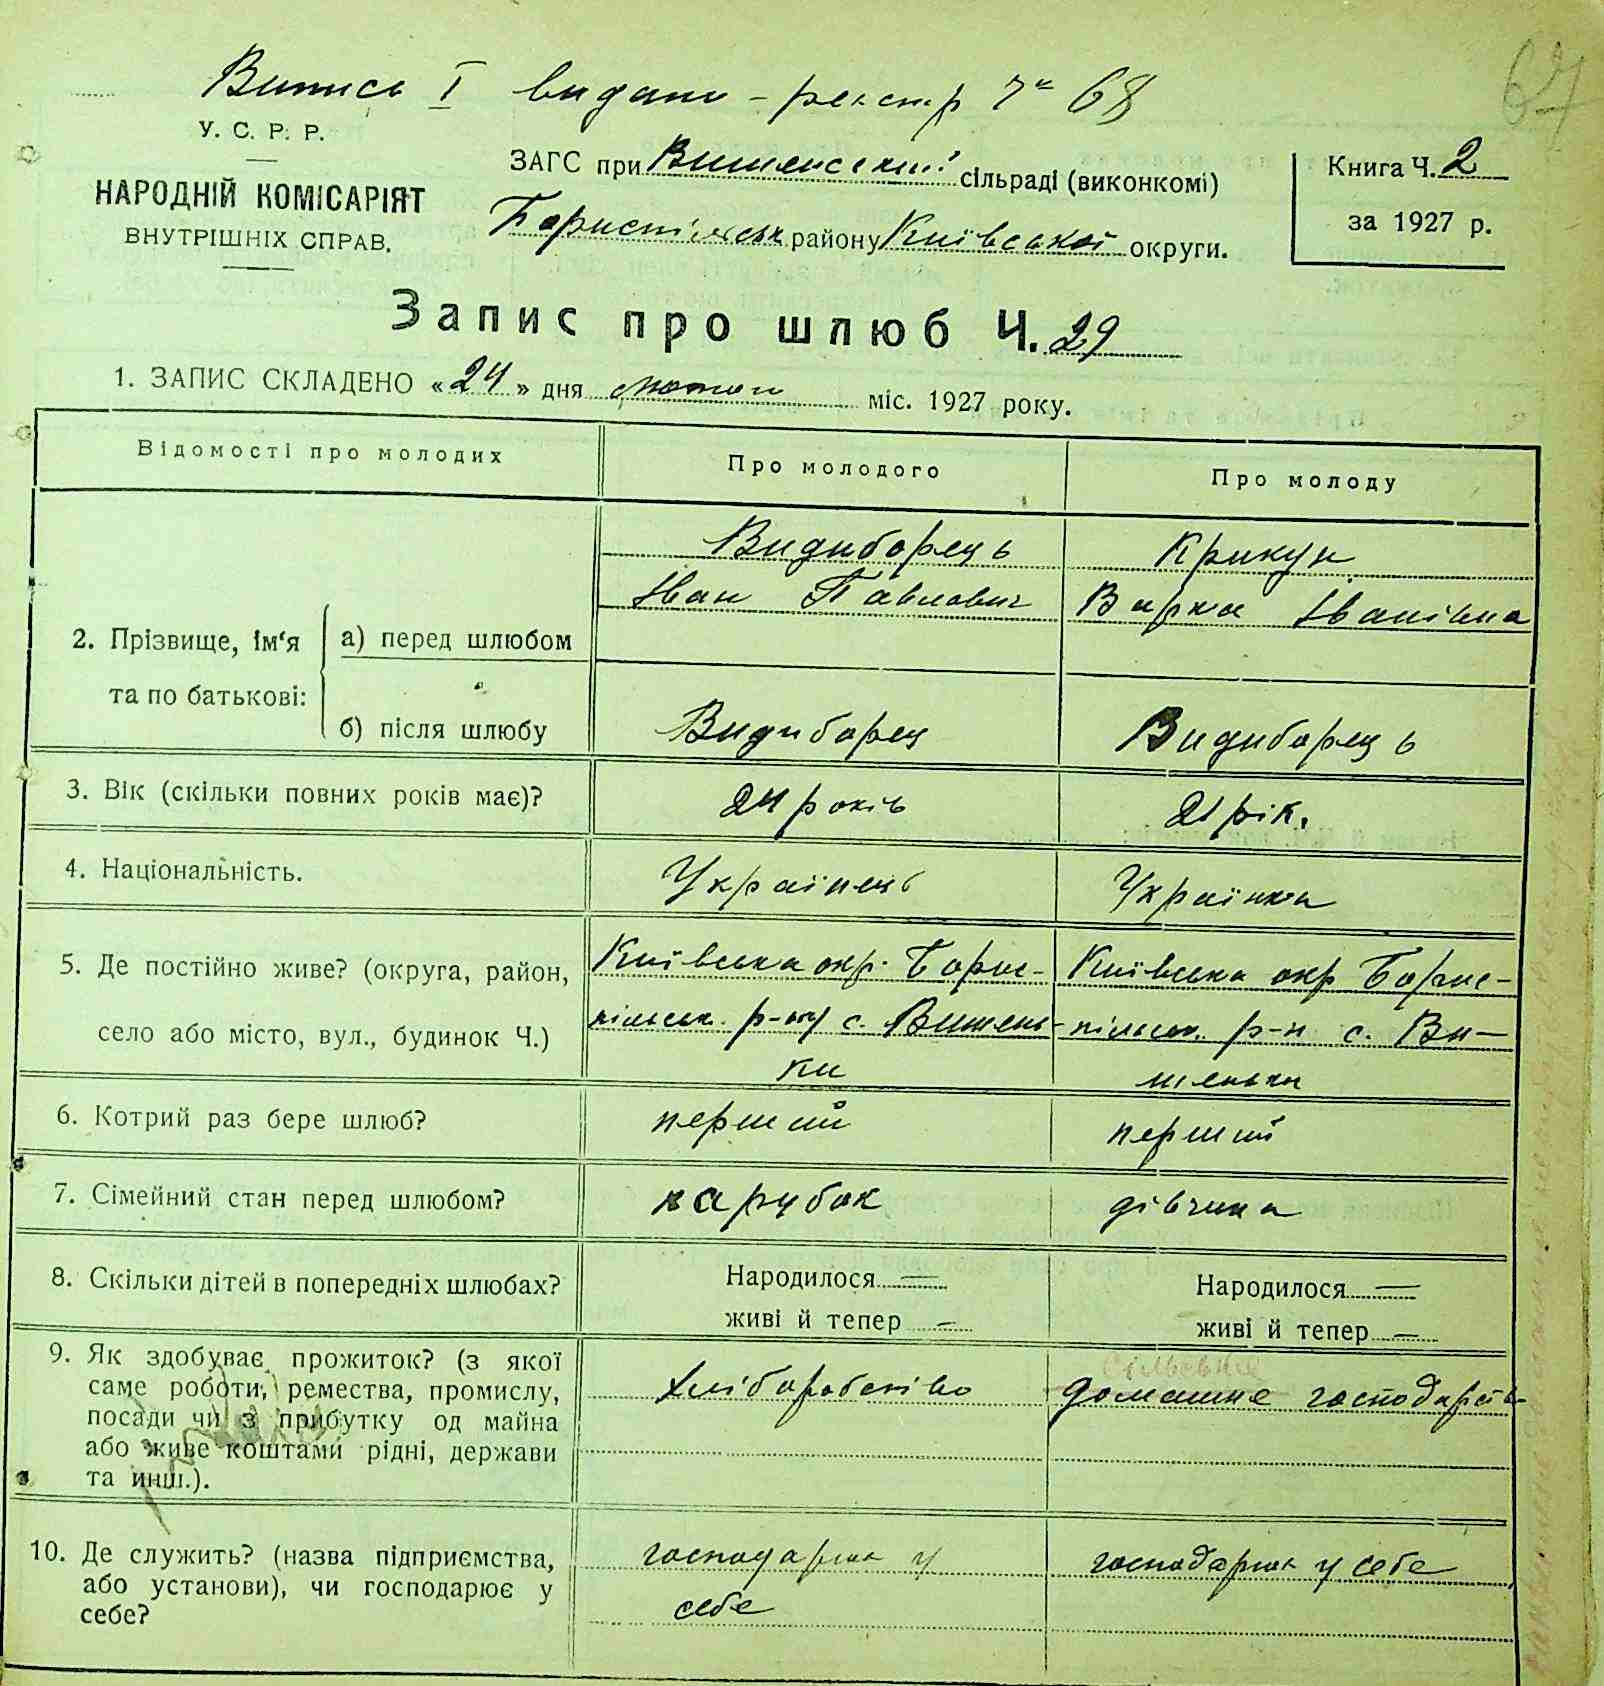 Випись I видано - реєстр Ч 68
67
У. С. Р. Р.
НАРОДНІЙ КОМІСАРІЯТ
ВНУТРІШНІХ СПРАВ.
ЗАГС при Вишенський сільраді (виконкомі)
Бориспільськ району Київської округи.
Книга Ч. 2
за 1927 р.
Запис про шлюб Ч. 29
1. ЗАПИС СКЛАДЕНО «24» дня лютого міс. 1927 року.
Відомості про молодих
Про молодого
Про молоду
2. Прізвище, ім'я та по батькові:
а) перед шлюбом
Видиборець
Іван Павлович
Крикун
Варка Іванівна
б) після шлюбу
Видиборец
Видиборець
3. Вік (скільки повних років має)?
24 років
21 рік.
4. Національність.
Українець
Українка
5. Де постійно живе? (округа, район,
село або місто, вул., будинок Ч.)
Київська окр. Борис-
пільськ. р-ну с. Вишень-
ки
Київська окр Борис-
пільськ. р-н с. Ви-
шеньки
6. Котрий раз бере шлюб?
перший
перший
7. Сімейний стан перед шлюбом?
парубок
дівчина
8. Скільки дітей в попередніх шлюбах?
Народилося —
живі й тепер —
Народилося —
живі й тепер —
9. Як здобуває прожиток? (з якої
саме роботи, ремества, промислу,
посади чи з прибутку од майна
або живе коштами рідні, держави
та инш.).
хліборобство
домашнє господарств
10. Де служить? (назва підприємства,
або установи), чи господарює у
себе?
господарює у
себе
господарює у себе